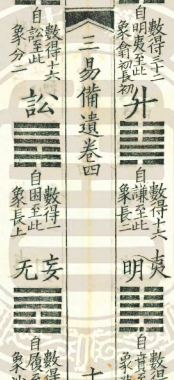 數得三十二
自明夷至此
象會初長初
升
數得十六
自謙至此
象長二
明夷
三易備遺卷四
數得十六
自訟至此
象分二
訟
數得一
自困至此
象長上
无妄
數得
自履至